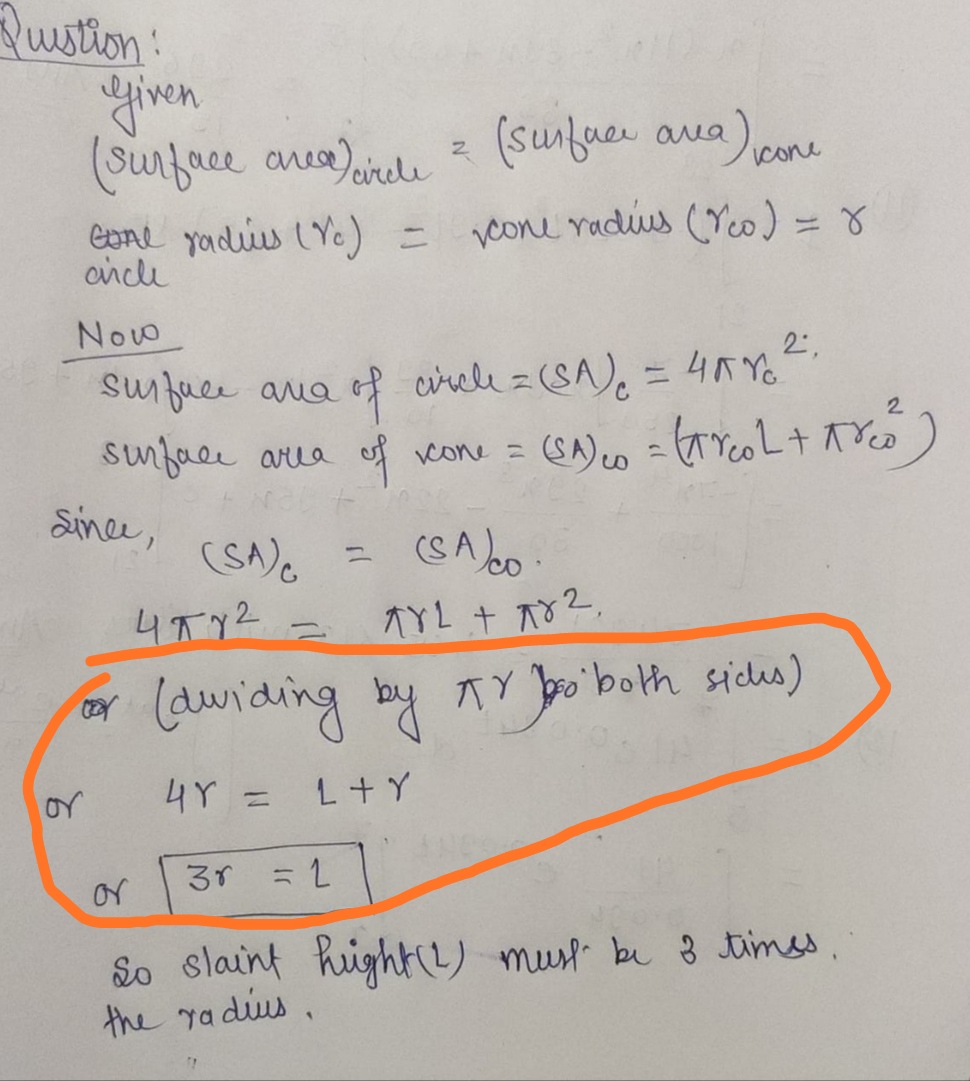 Question:
Given
(surface area)circle = (surface area)cone
radius (rc) = cone radius (rco) = r
circle
Now
surface area of circle = (SA)c = 4πrc².
surface area of cone = (SA)co = (πrcoL + πrco²)
Since,
(SA)c = (SA)co.
4πr² = πrL + πr².
or (dividing by πr both sides)
or 4r = L + r
or 3r = L
So slaint height(L) must be 3 times.
the radius.